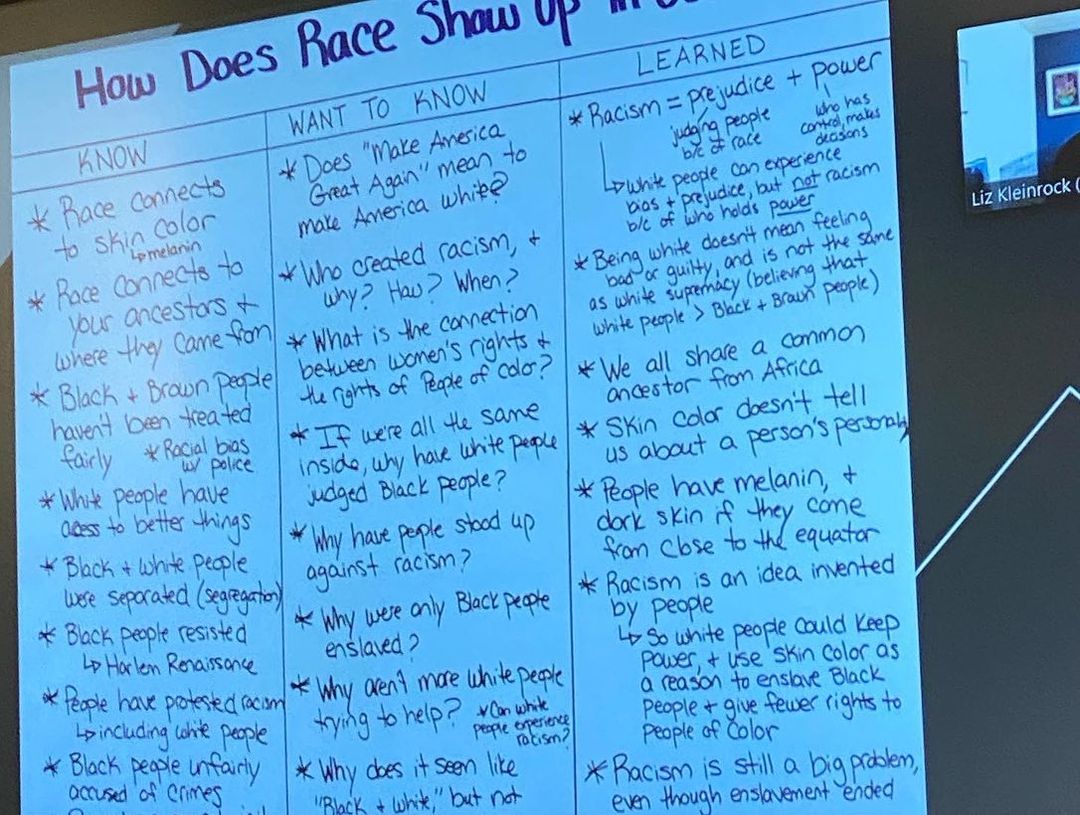 How Does Race Show Up in
KNOW
* Race connects
to skin color
↳melanin
* Race connects to
your ancestors +
where they came from
* Black + Brown people
haven't been treated
fairly * Racial bias
w/ police
* White people have
access to better things
* Black + white people
were separated (segregation)
* Black people resisted
↳ Harlem Renaissance
* People have protested racism
↳ including white people
* Black people unfairly
accused of crimes
WANT TO KNOW
* Does "Make America
Great Again" mean to
make America white?
* Who created racism, +
why? How? When?
* What is the connection
between women's rights +
the rights of People of color?
* If we're all the same
inside, why have white people
judged Black people?
* Why have people stood up
against racism?
* Why were only Black people
enslaved?
* Why aren't more white people
trying to help? * Can white
people experience
racism?
* Why does it seem like
"Black + white," but not
LEARNED
* Racism = prejudice + power
judging people
b/c of race
who has
control, makes
decisions
↳ White people can experience
bias + prejudice, but not racism
b/c of who holds power
* Being white doesn't mean feeling
bad or guilty, and is not the same
as white supremacy (believing that
white people > Black + Brown people)
* We all share a common
ancestor from Africa
* Skin color doesn't tell
us about a person's personality
* People have melanin, +
dark skin if they come
from close to the equator
* Racism is an idea invented
by people
↳ So white people could keep
power, + use skin color as
a reason to enslave Black
people + give fewer rights to
People of Color
* Racism is still a big problem,
even though enslavement ended
Liz Kleinrock (